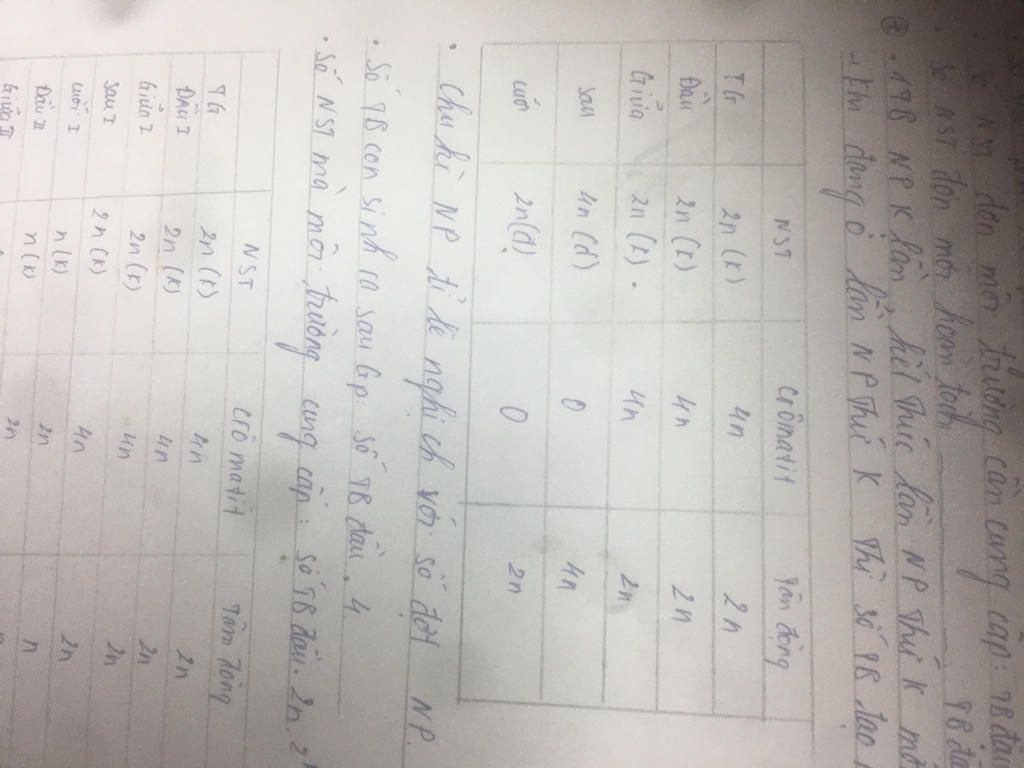 số NST đến môi trường cần cung cấp: TB đầu
số NST đến môi hoàn toàn TB đầ
* . 1 TB NP K lần, kết thúc lần NP thứ K mớ
- Khi đang ở lần NP thứ K thì số TB tạo
NST crômatit Tâm động
TG 2n (k) 4n 2n
Đầu 2n (k) 4n 2n
Giữa 2n (k). 4n 2n
sau 4n (đ) 0 4n
cuối 2n (đ) 0 2n
. Chu kì NP tỉ lệ nghịch với số đợt NP.
. Số TB con sinh ra sau Gp. số TB đầu . 4
. Số NST mà môi trường cung cấp: số TB đầu. 2n. 2
NST crômatit Tâm động
TG 2n (k) 4n 2n
Đầu I 2n (k) 4n 2n
Giữa I 2n (k) 4n 2n
sau I 2n (k) 4n 2n
cuối I n (k) 2n n
Đầu II n (k) 2n n
Giữa II 2n